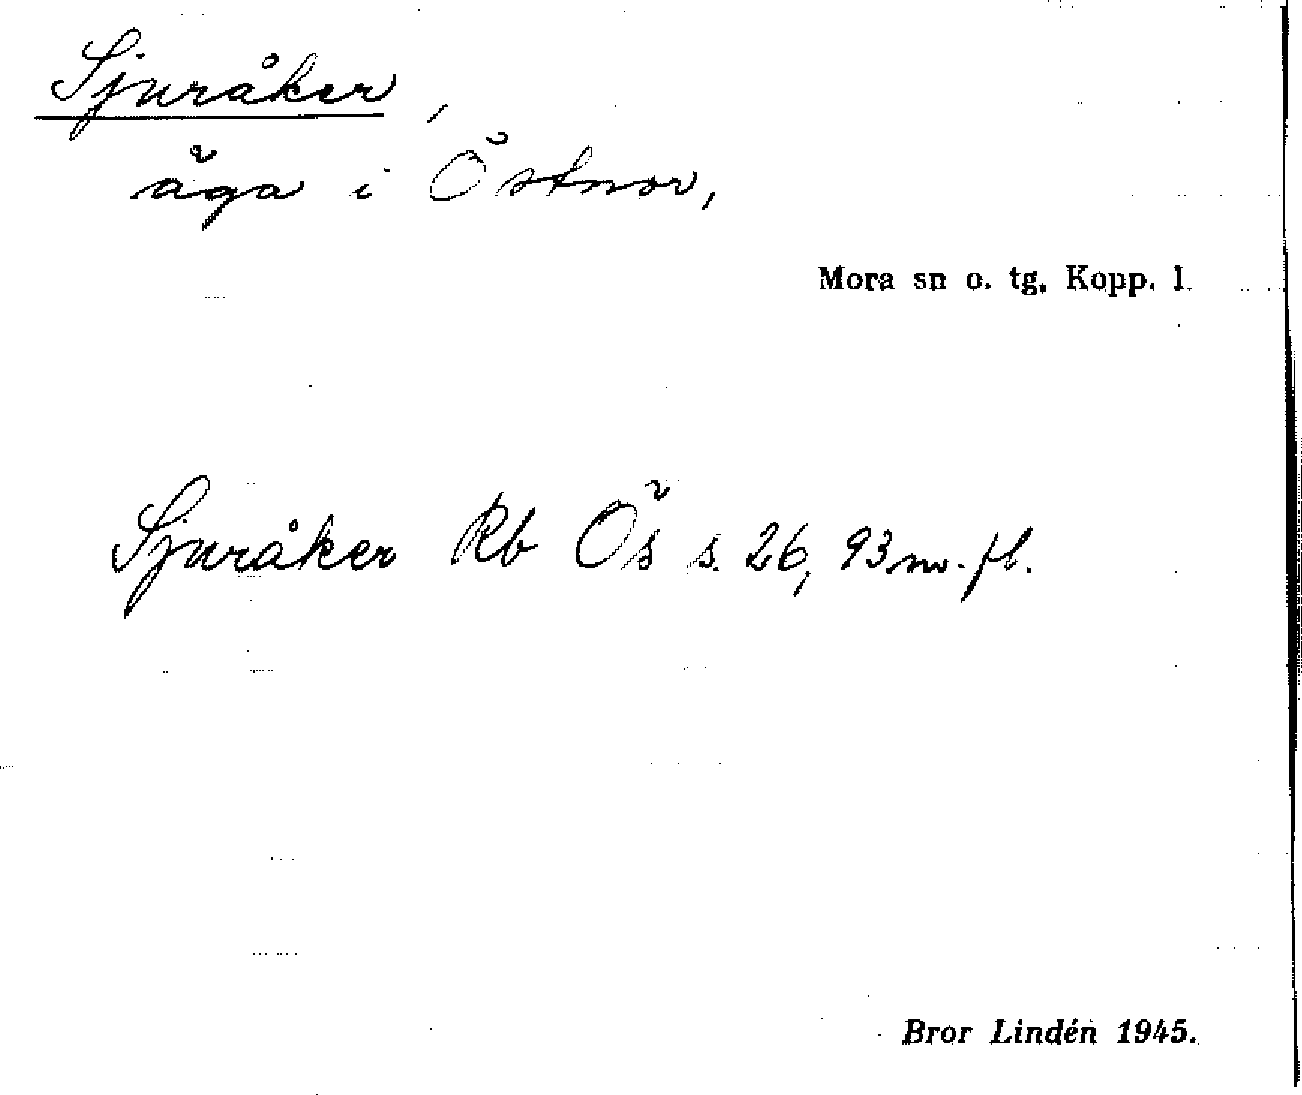 Sjuråker,
äga i Östnor,
Mora sn o. tg. Kopp. l.
Sjuråker Rb Ös s. 26, 93 m. fl.
Bror Lindén 1945.